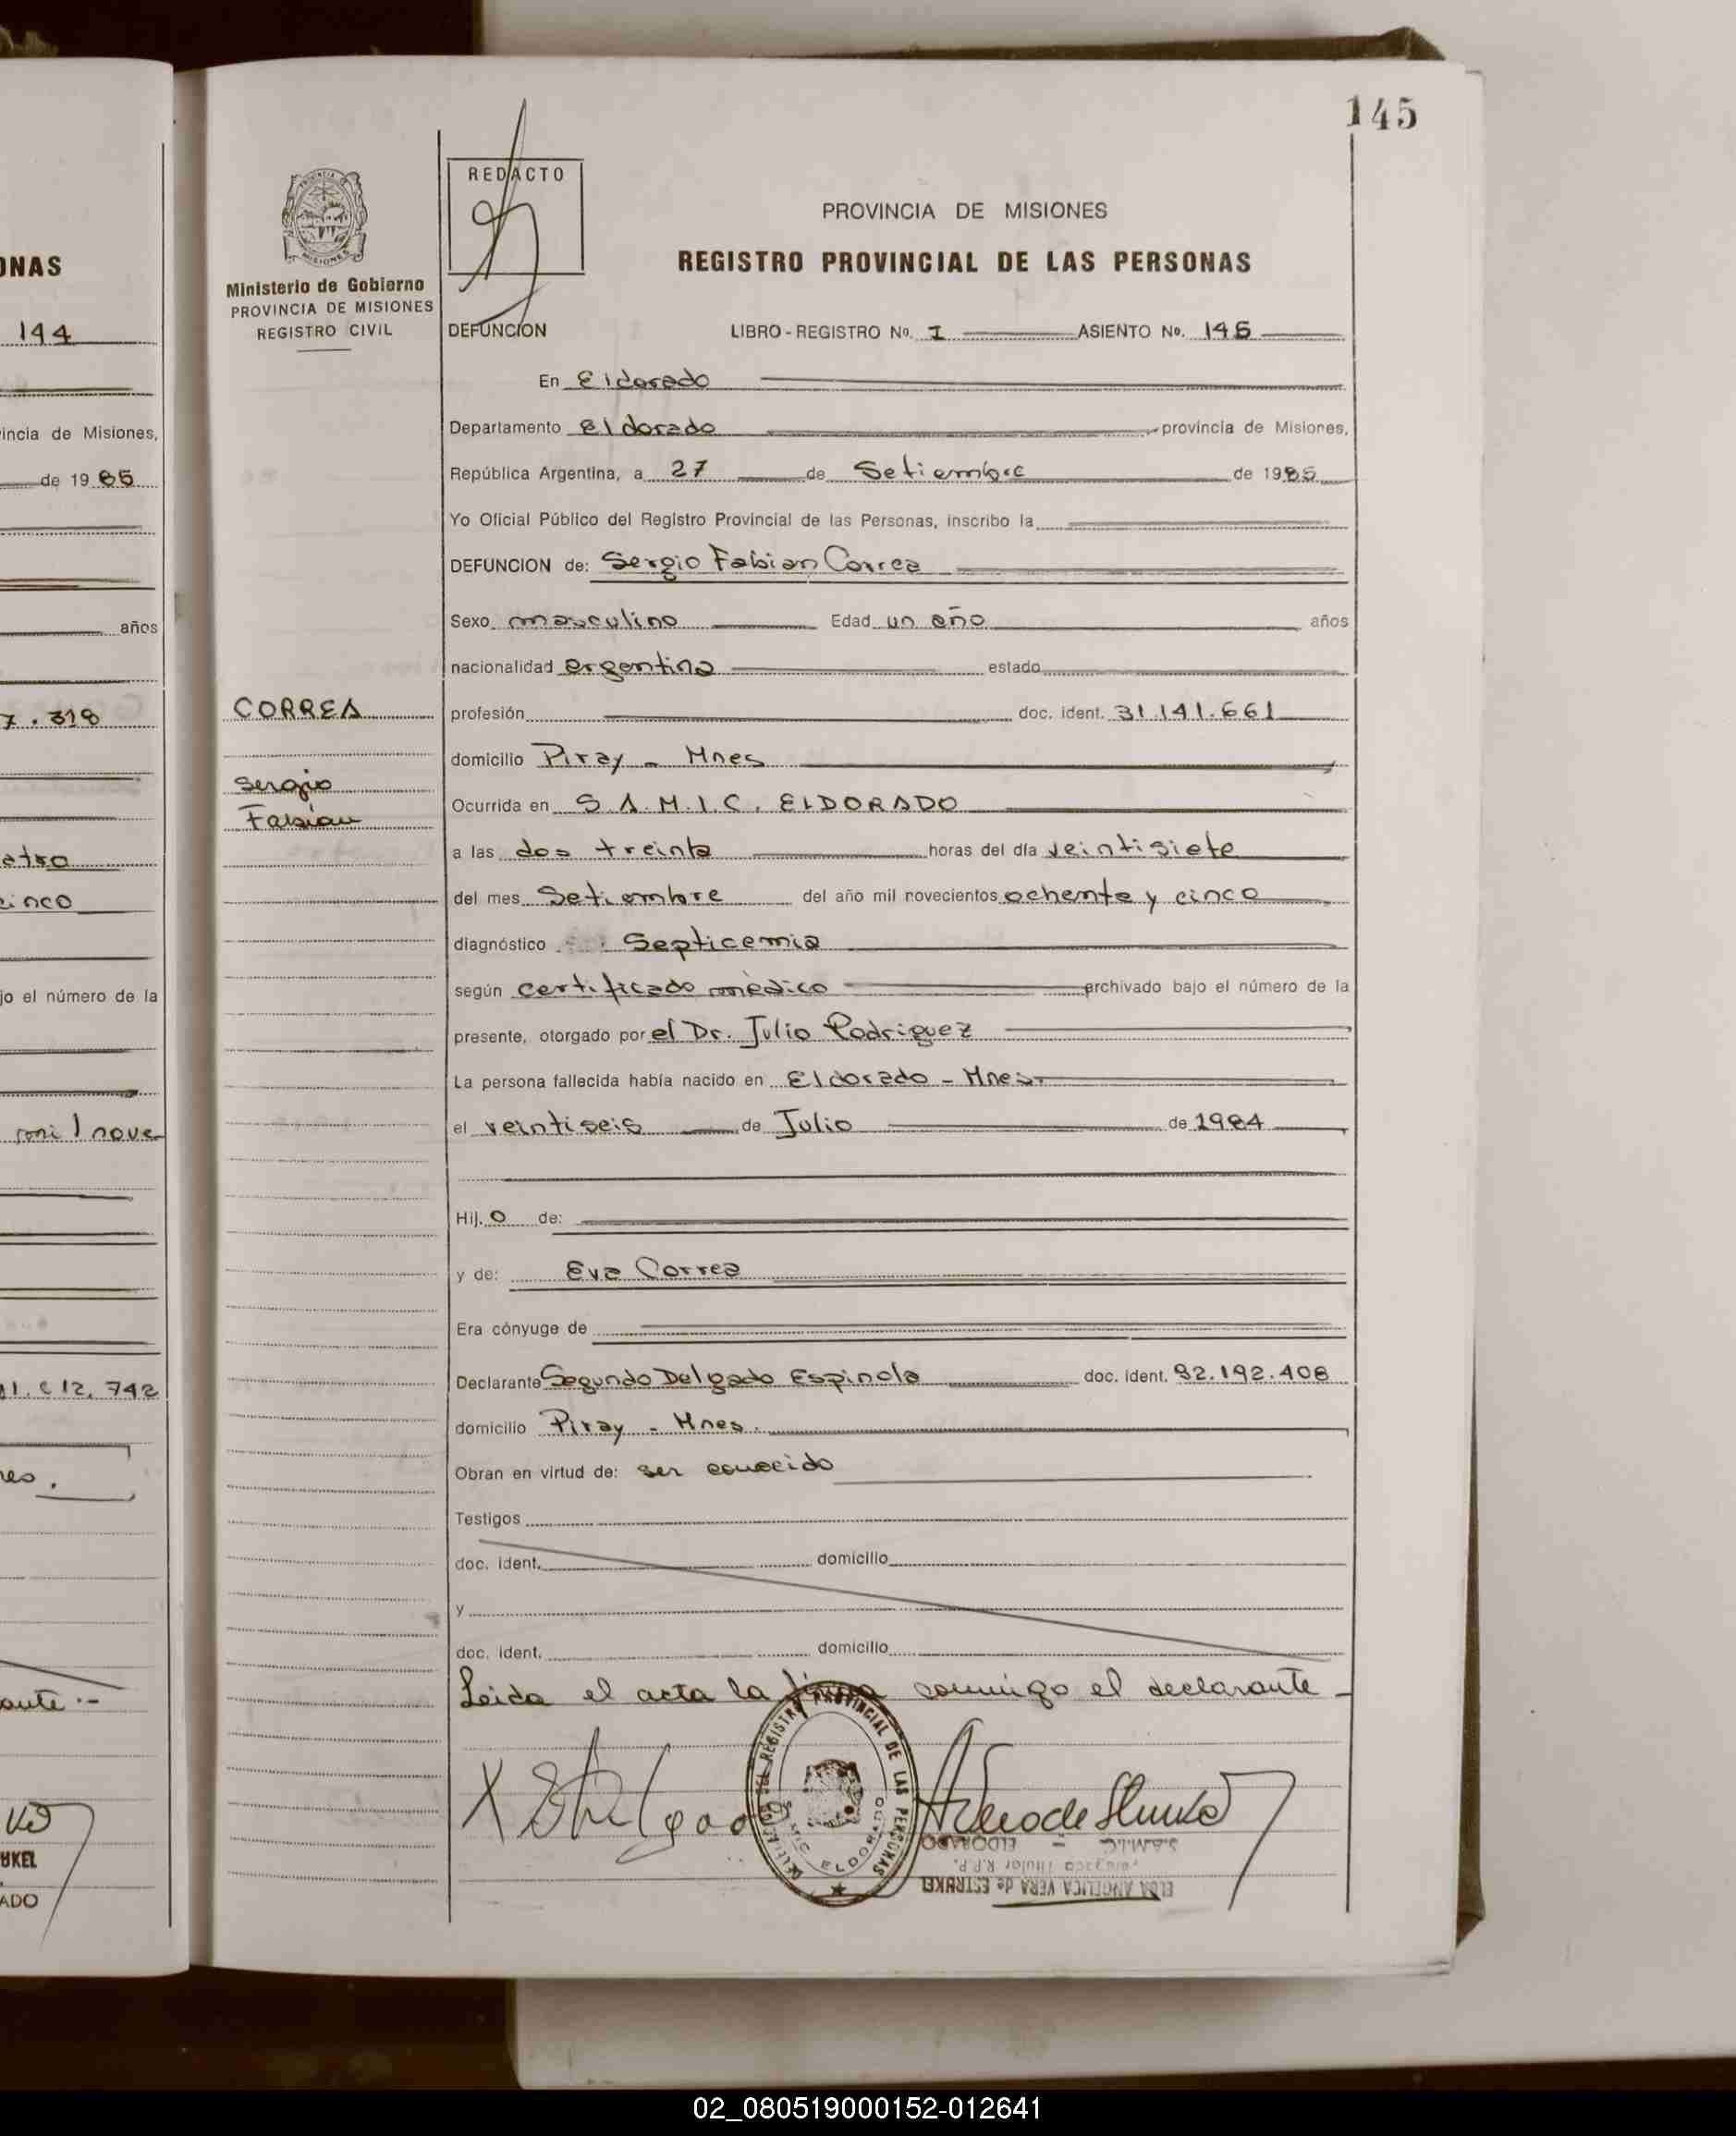 145
ONAS
144
incia de Misiones,
de 19 85
años
7.318
atro
cinco
jo el número de la
mil nove
742
eo.
ante .-
UKEL
ADO
PROVINCIA DE MISIONES
Ministerio de Gobierno
PROVINCIA DE MISIONES
REGISTRO CIVIL
CORREA
Sergio
Fabián
REDACTO
PROVINCIA DE MISIONES
REGISTRO PROVINCIAL DE LAS PERSONAS
DEFUNCION LIBRO - REGISTRO Nº. 1 ASIENTO Nº. 145
En Eldorado
Departamento Eldorado provincia de Misiones,
República Argentina, a 27 de Setiembre de 1985
Yo Oficial Público del Registro Provincial de las Personas, inscribo la
DEFUNCION de: Sergio Fabian Correa
Sexo masculino Edad un año años
nacionalidad argentina estado
profesión doc. ident. 31.141.661
domicilio Piray - Mnes
Ocurrida en S.A.M.I.C. ELDORADO
a las dos treinta horas del día veintisiete
del mes Setiembre del año mil novecientos ochenta y cinco
diagnóstico Septicemia
según certificado mèdico archivado bajo el número de la
presente, otorgado por el Dr. Julio Rodriguez
La persona fallecida había nacido en Eldorado - Mnes.
el veintiseis de Julio de 1984
Hij. o de:
y de: Eva Correa
Era cónyuge de
Declarante Segundo Delgado Espinola doc. ident. 92.192.408
domicilio Piray - Mnes.
Obran en virtud de: ser conocido
Testigos
doc. ident. domicilio
y
doc. ident. domicilio
Leida el acta la firma conmigo el declarante -
X
DEL REGISTRO PROVINCIAL DE LAS PERSONAS
ELDORADO
S.A.M.I.C. - ELDORADO
Titular R.P.P.
ELBA ANGELICA VERA de ESTRUKEL
02_080519000152-012641